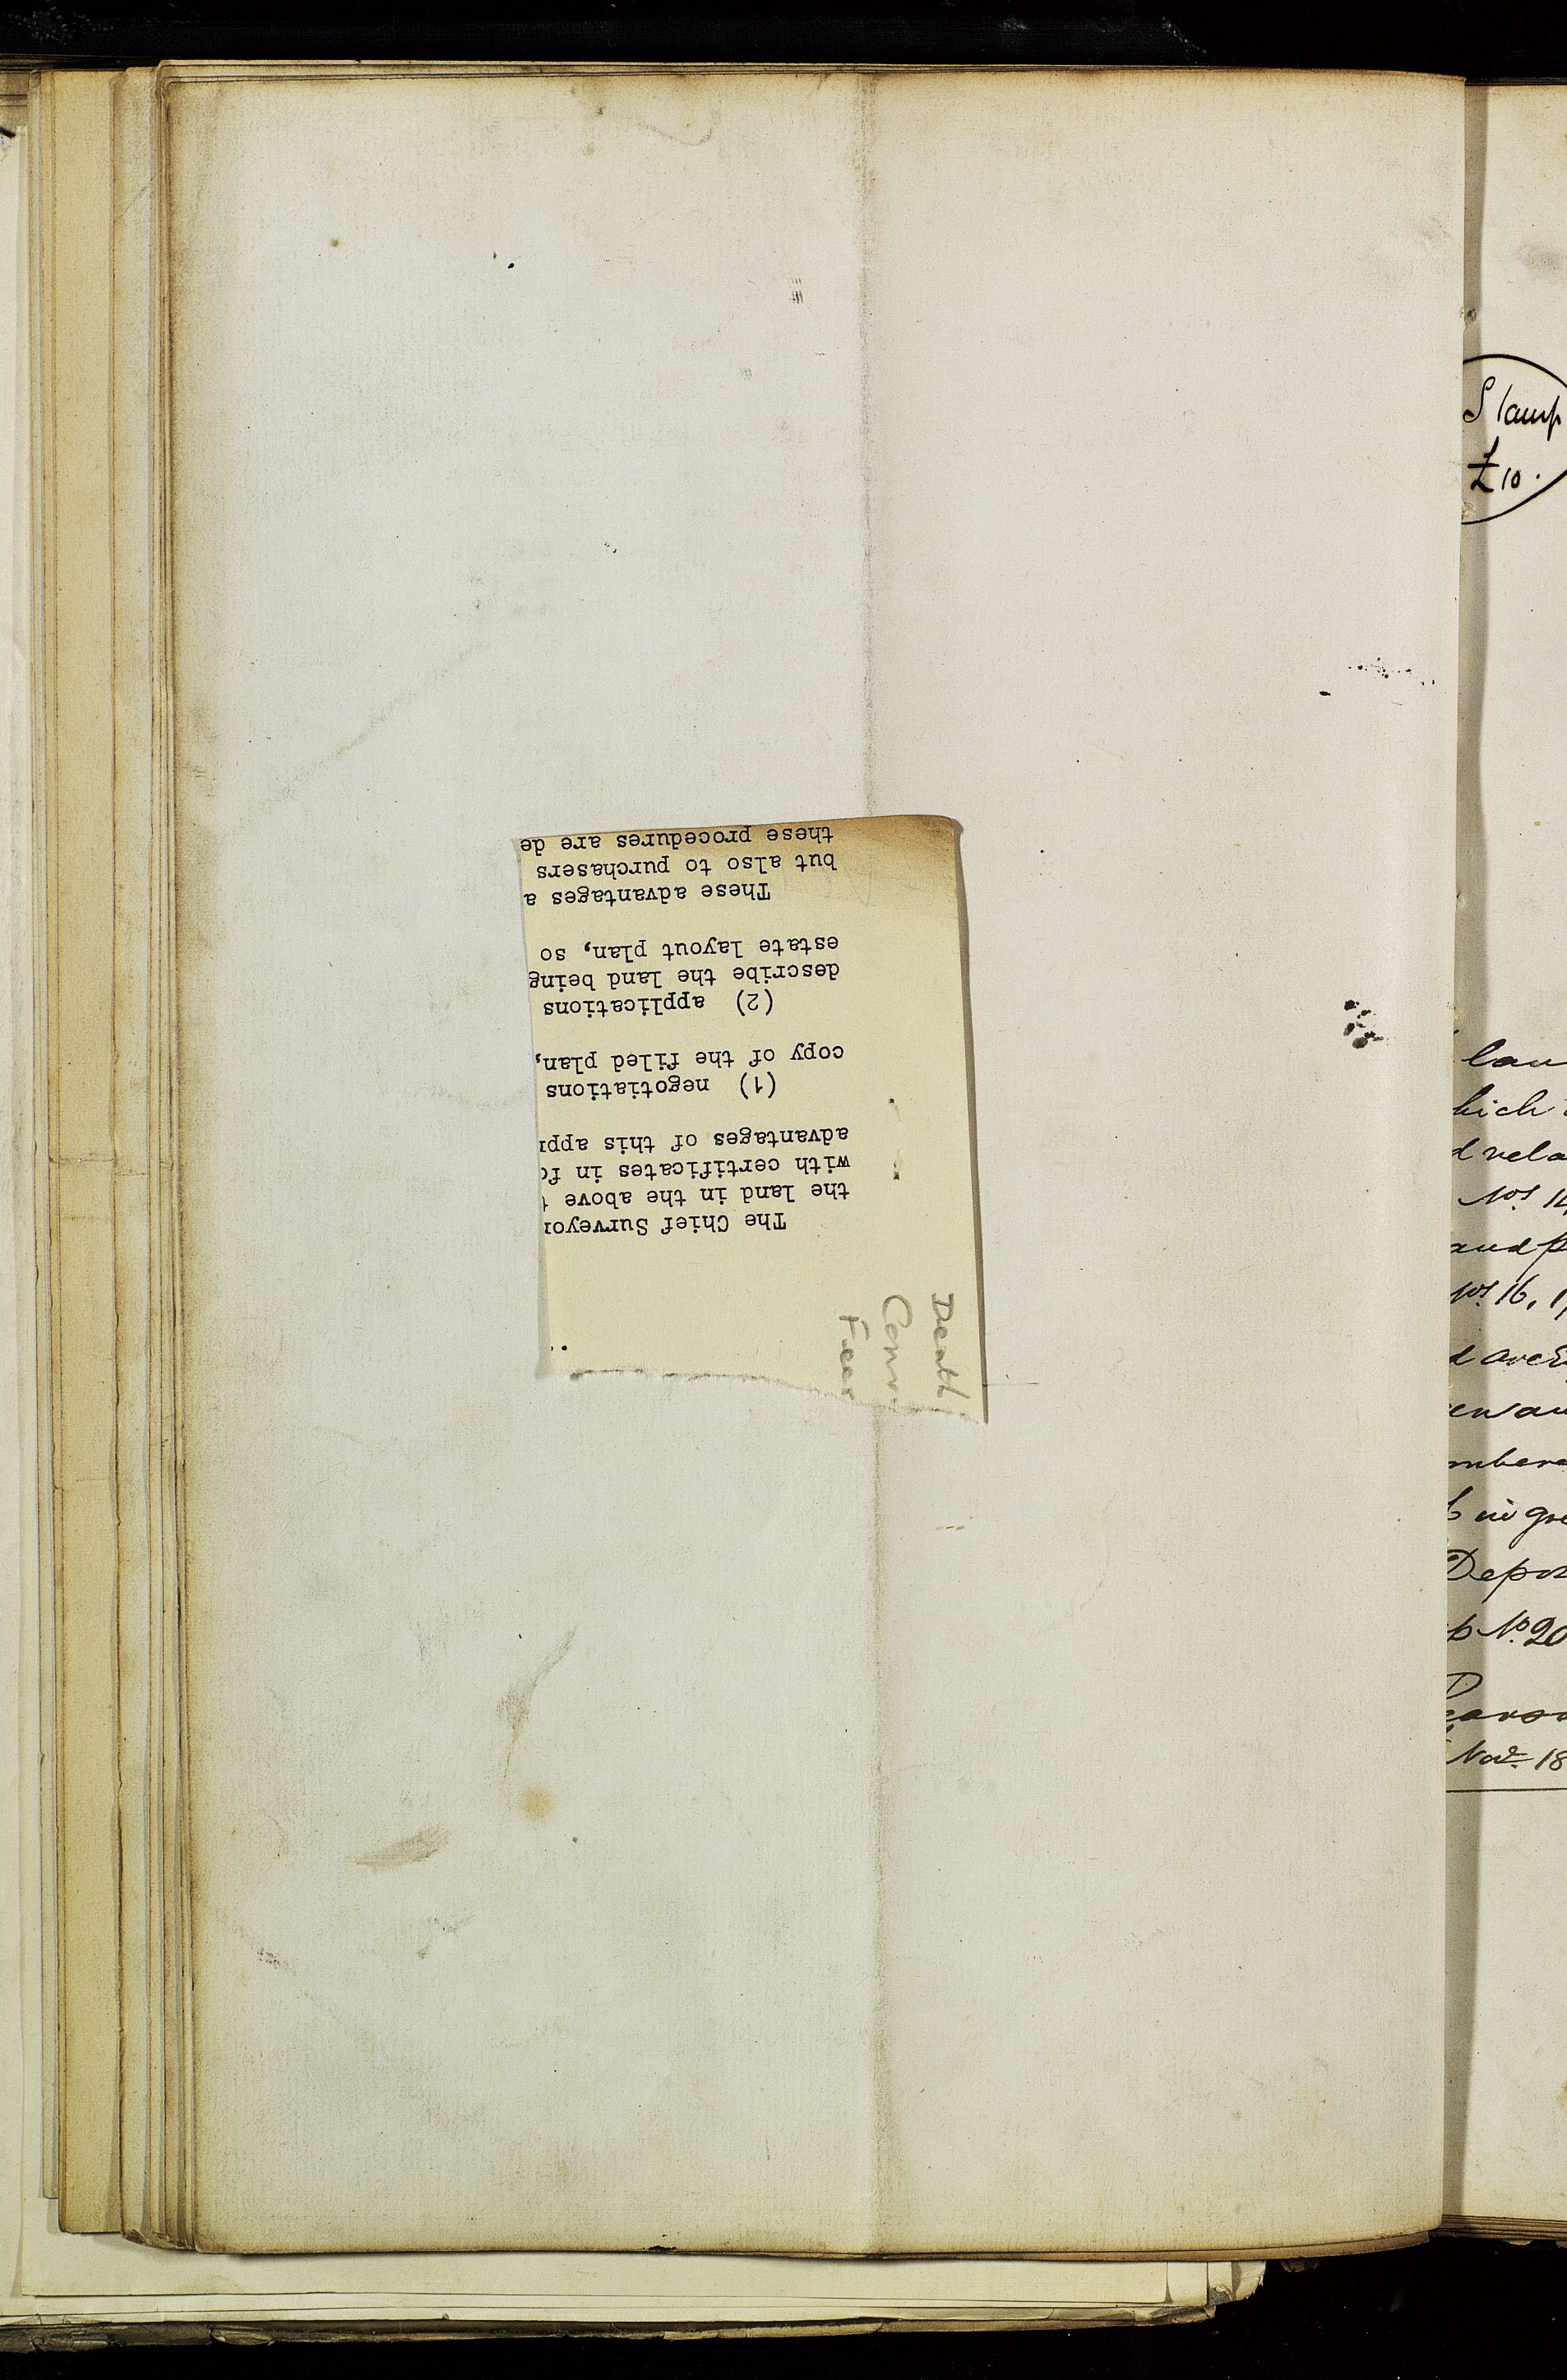 The Chief Surveyor
the land in the above
with certificates in fo
advantages of this app
(1) negotiations
copy of the filed plan,
(2) applications
describe the land being
estate layout plan, so
These advantages a
but also to purchasers
these procedures are de
Death
Stamp
£10.
lan
hich
d rela
Nos. 14,
and p
Nos. 16, 1
en an
mbere
Depos
No. 20
Nov. 18